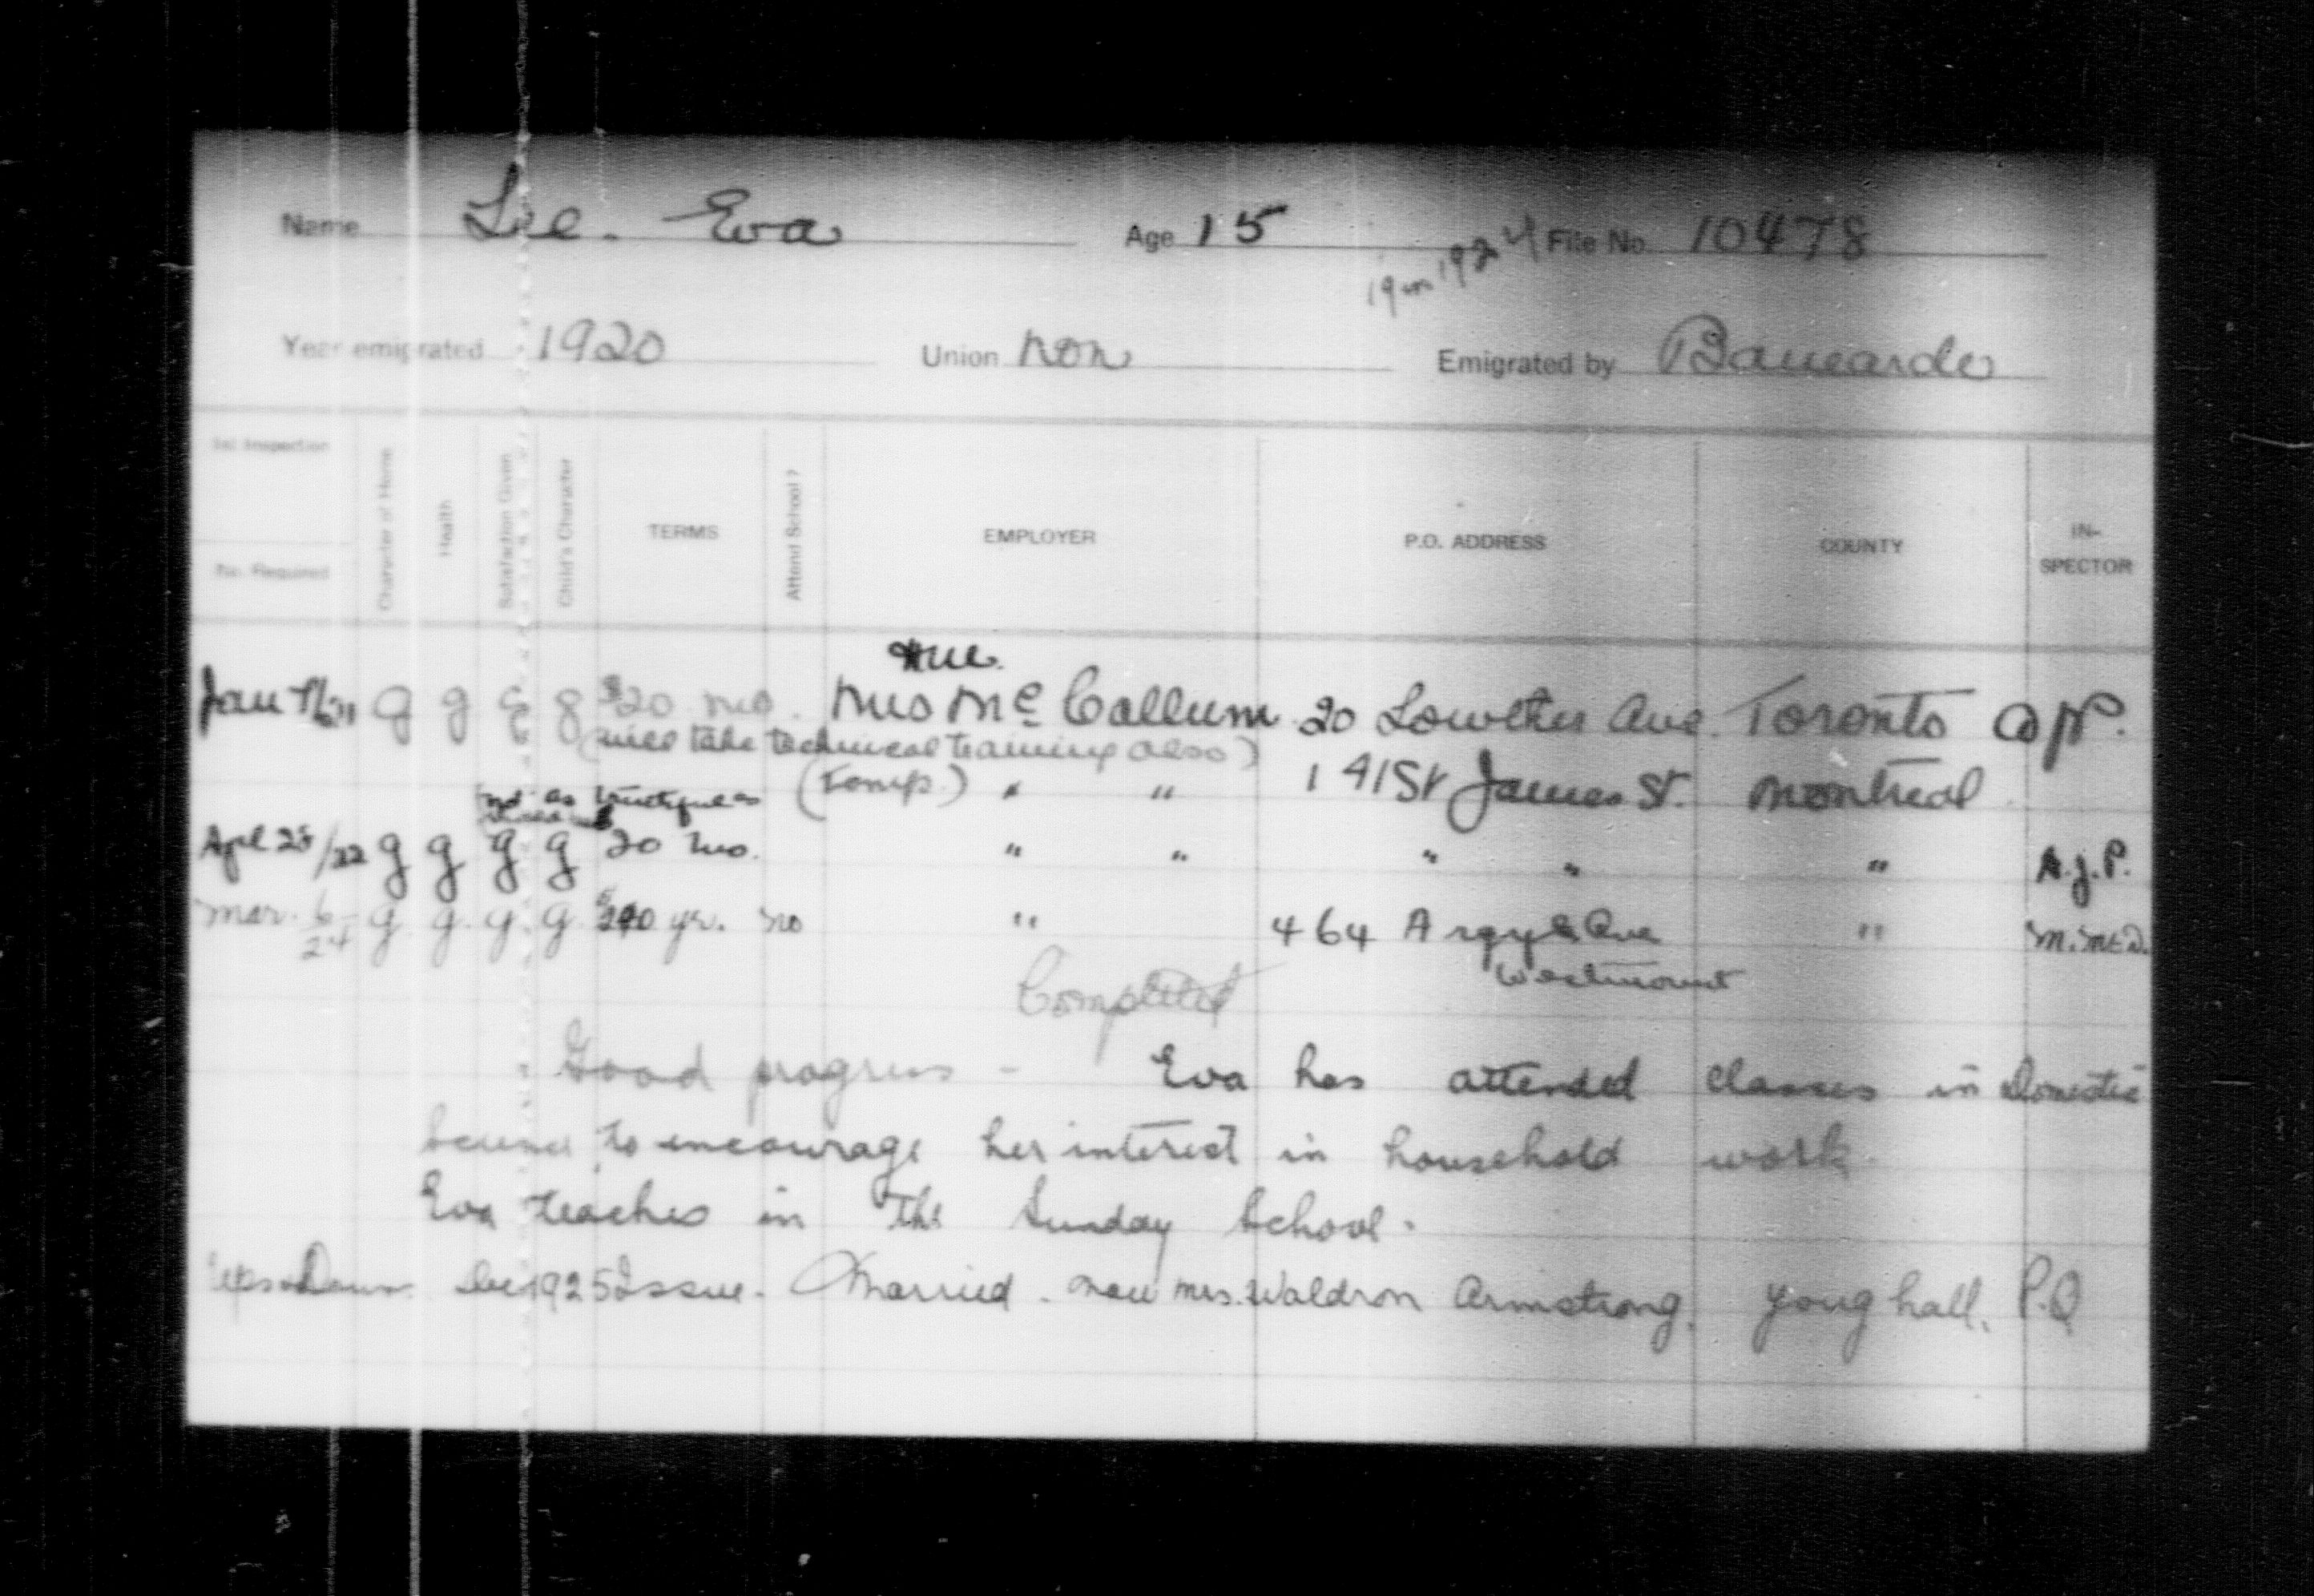 Name Lee. Eva Age 15 File No. 10478
19 in 1924
Year emigrated 1920 Union Non Emigrated by Barnardo
1st Inspection
No. Required
Character of Home
Health
Satisfaction Given
Child's Character
TERMS
Attend School?
EMPLOYER
P.O. ADDRESS
COUNTY
IN-
SPECTOR
Jan g g g g $20 mo. Mrs Mc Callum 20 Lowther Ave. Toronto
(will take technical training also)
(Temp.) " " 141 St James St. Montreal
not as
Apl 25/22 g g g g 20 mo. " " " " " A.J.P.
Mar. 6/24 g g. g. g. yr. no " 464 Argyle Ave "
Westmount
Completed
Good progress - Eva has attended classes in Domestic
Science to encourage her interest in household work.
Eva teaches in the Sunday School.
Ups & Downs Dec 1925 Issue. Married. Now Mrs. Waldron Armstrong, Younghall, P.Q